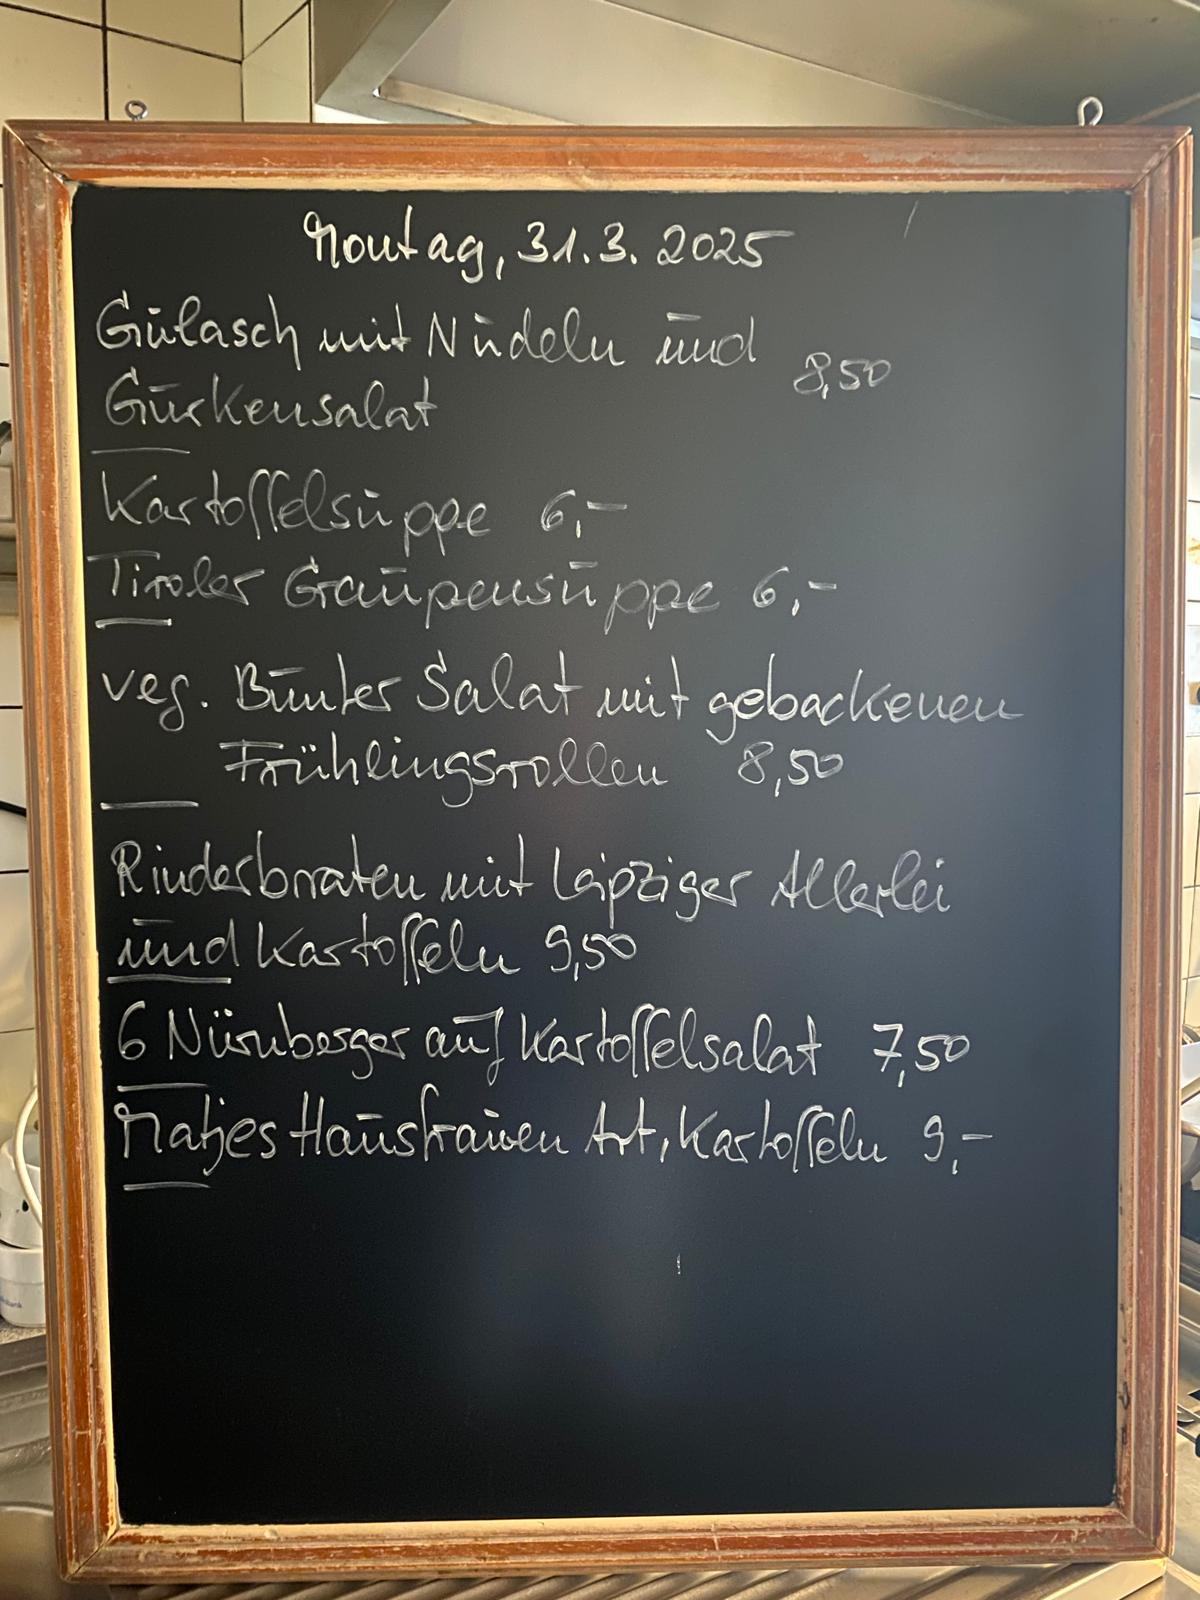 Montag, 31.3. 2025
Gulasch mit Nudeln und
Gurkensalat 8,50
Kartoffelsuppe 6,-
Tiroler Graupensuppe 6,-
veg. Bunter Salat mit gebackenen
Frühlingsrollen 8,50
Rinderbraten mit Leipziger Allerlei
und Kartoffeln 9,50
6 Nürnberger auf Kartoffelsalat 7,50
Matjes Hausfrauen Art, Kartoffeln 9,-